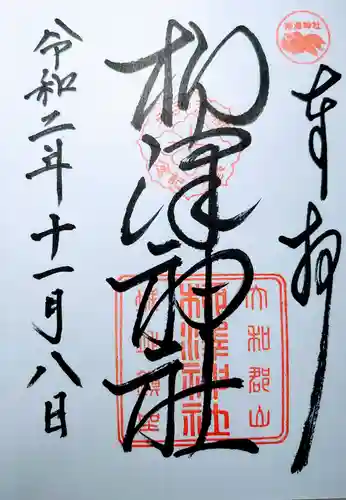 奉拝
柳澤神社
令和二年十一月八日
柳澤神社
大和郡山
柳澤神社